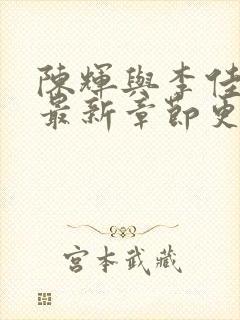 陳輝與李佳
最新章節更
宮本武藏